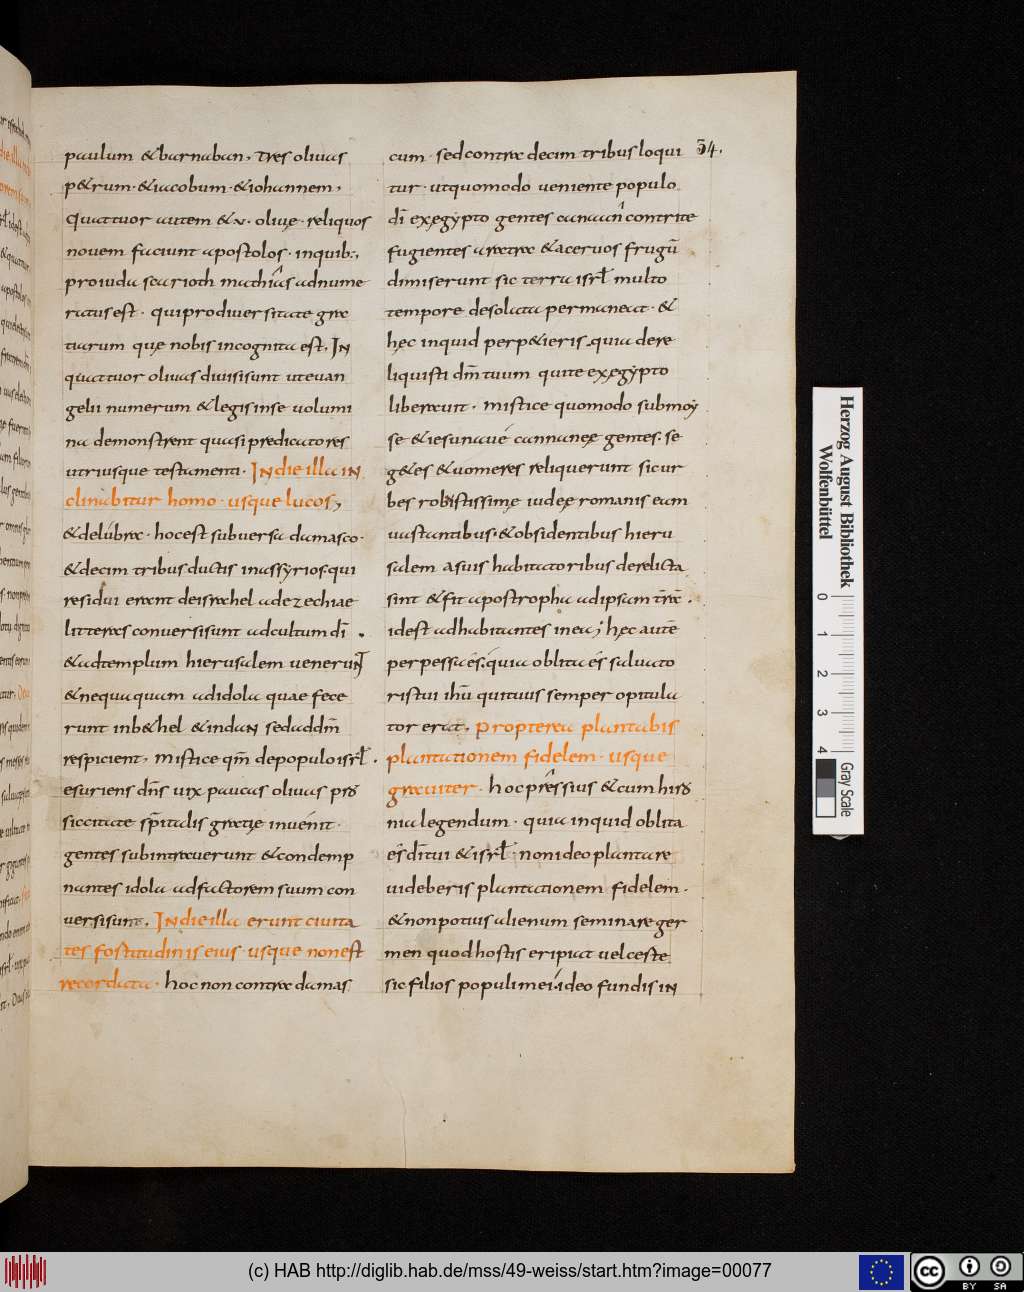 paulum & barnaban, tres oliuas
p&rum · & iacobum · & iohannem,
quattuor autem & v · oliuę · reliquos
nouem faciunt apostolos · inquib:,
pro iuda scarioth mathias adnume
ratus est · qui pro diuersitate gra
tiarum quę nobis incognita est, IN
quattuor oliuas diuisi sunt ut euan
gelii numerum & legis in se uolumi
na demonstrent quasi predicatores
utriusque testamenti · In die illa IN
clinabitur homo · usque lucos,
& delubra · hoc est subuersa damasco ·
& decim tribus ductis in assyrios · qui
residui erant de israhel ad ezechiae
litteras conuersi sunt ad cultum dī ·
& ad templum hierusalem uenerunt
& nequaquam ad idola quae fece
runt in b&hel & in dan sed ad dm̄
respicient, Mistice qm̄ de populo isrł ·
esuriens dn̄s uix paucas oliuas pro
siccitate sp̄italis gratię inuenit ·
gentes subintrauerunt & condemp
nantes idola ad factorem suum con
uersi sunt, In die illa erunt ciuita
tes fostitudinis eius usque non est
recordata · hoc non contra damas
54.
cum · sed contra decim tribus loqui
tur · ut quomodo ueniente populo
dī ex ęgypto gentes canaan contrite
fugientes aratra & aceruos frugū
dimiserunt sic terra isrł multo
tempore desolata permaneat · &
hęc inquid perp&ieris quia dere
liquisti dm̄ tuum qui te ex ęgypto
liberauit · Mistice quomodo sub moy
se & iesu naue cannaneę gentes se
g&es & uomeres reliquerunt sic ur
bes robustissimę iudeę romanis eam
uastantibus · & obsidentibus hieru
salem a suis habitatoribus derelicta
sint & fit apostropha ad ipsam trā ·
id est ad habitantes in ea; hęc autē
perpessa es · quia oblita es saluato
ris tui ihū qui tuus semper opitula
tor erat, Propterea plantabis
plantationem fidelem · usque
grauiter · hoc pressius & cum hiro
nia legendum · quia inquid oblita
es dī tui & isrł · non ideo plantare
uideberis plantationem fidelem ·
& non potius alienum seminare ger
men quod hostis eripiat uel ceste
sic filios populi mei · ideo fundis IN
Herzog August Bibliothek
Wolfenbüttel
0 1 2 3 4
Gray Scale
(c) HAB http://diglib.hab.de/mss/49-weiss/start.htm?image=00077
cc BY SA